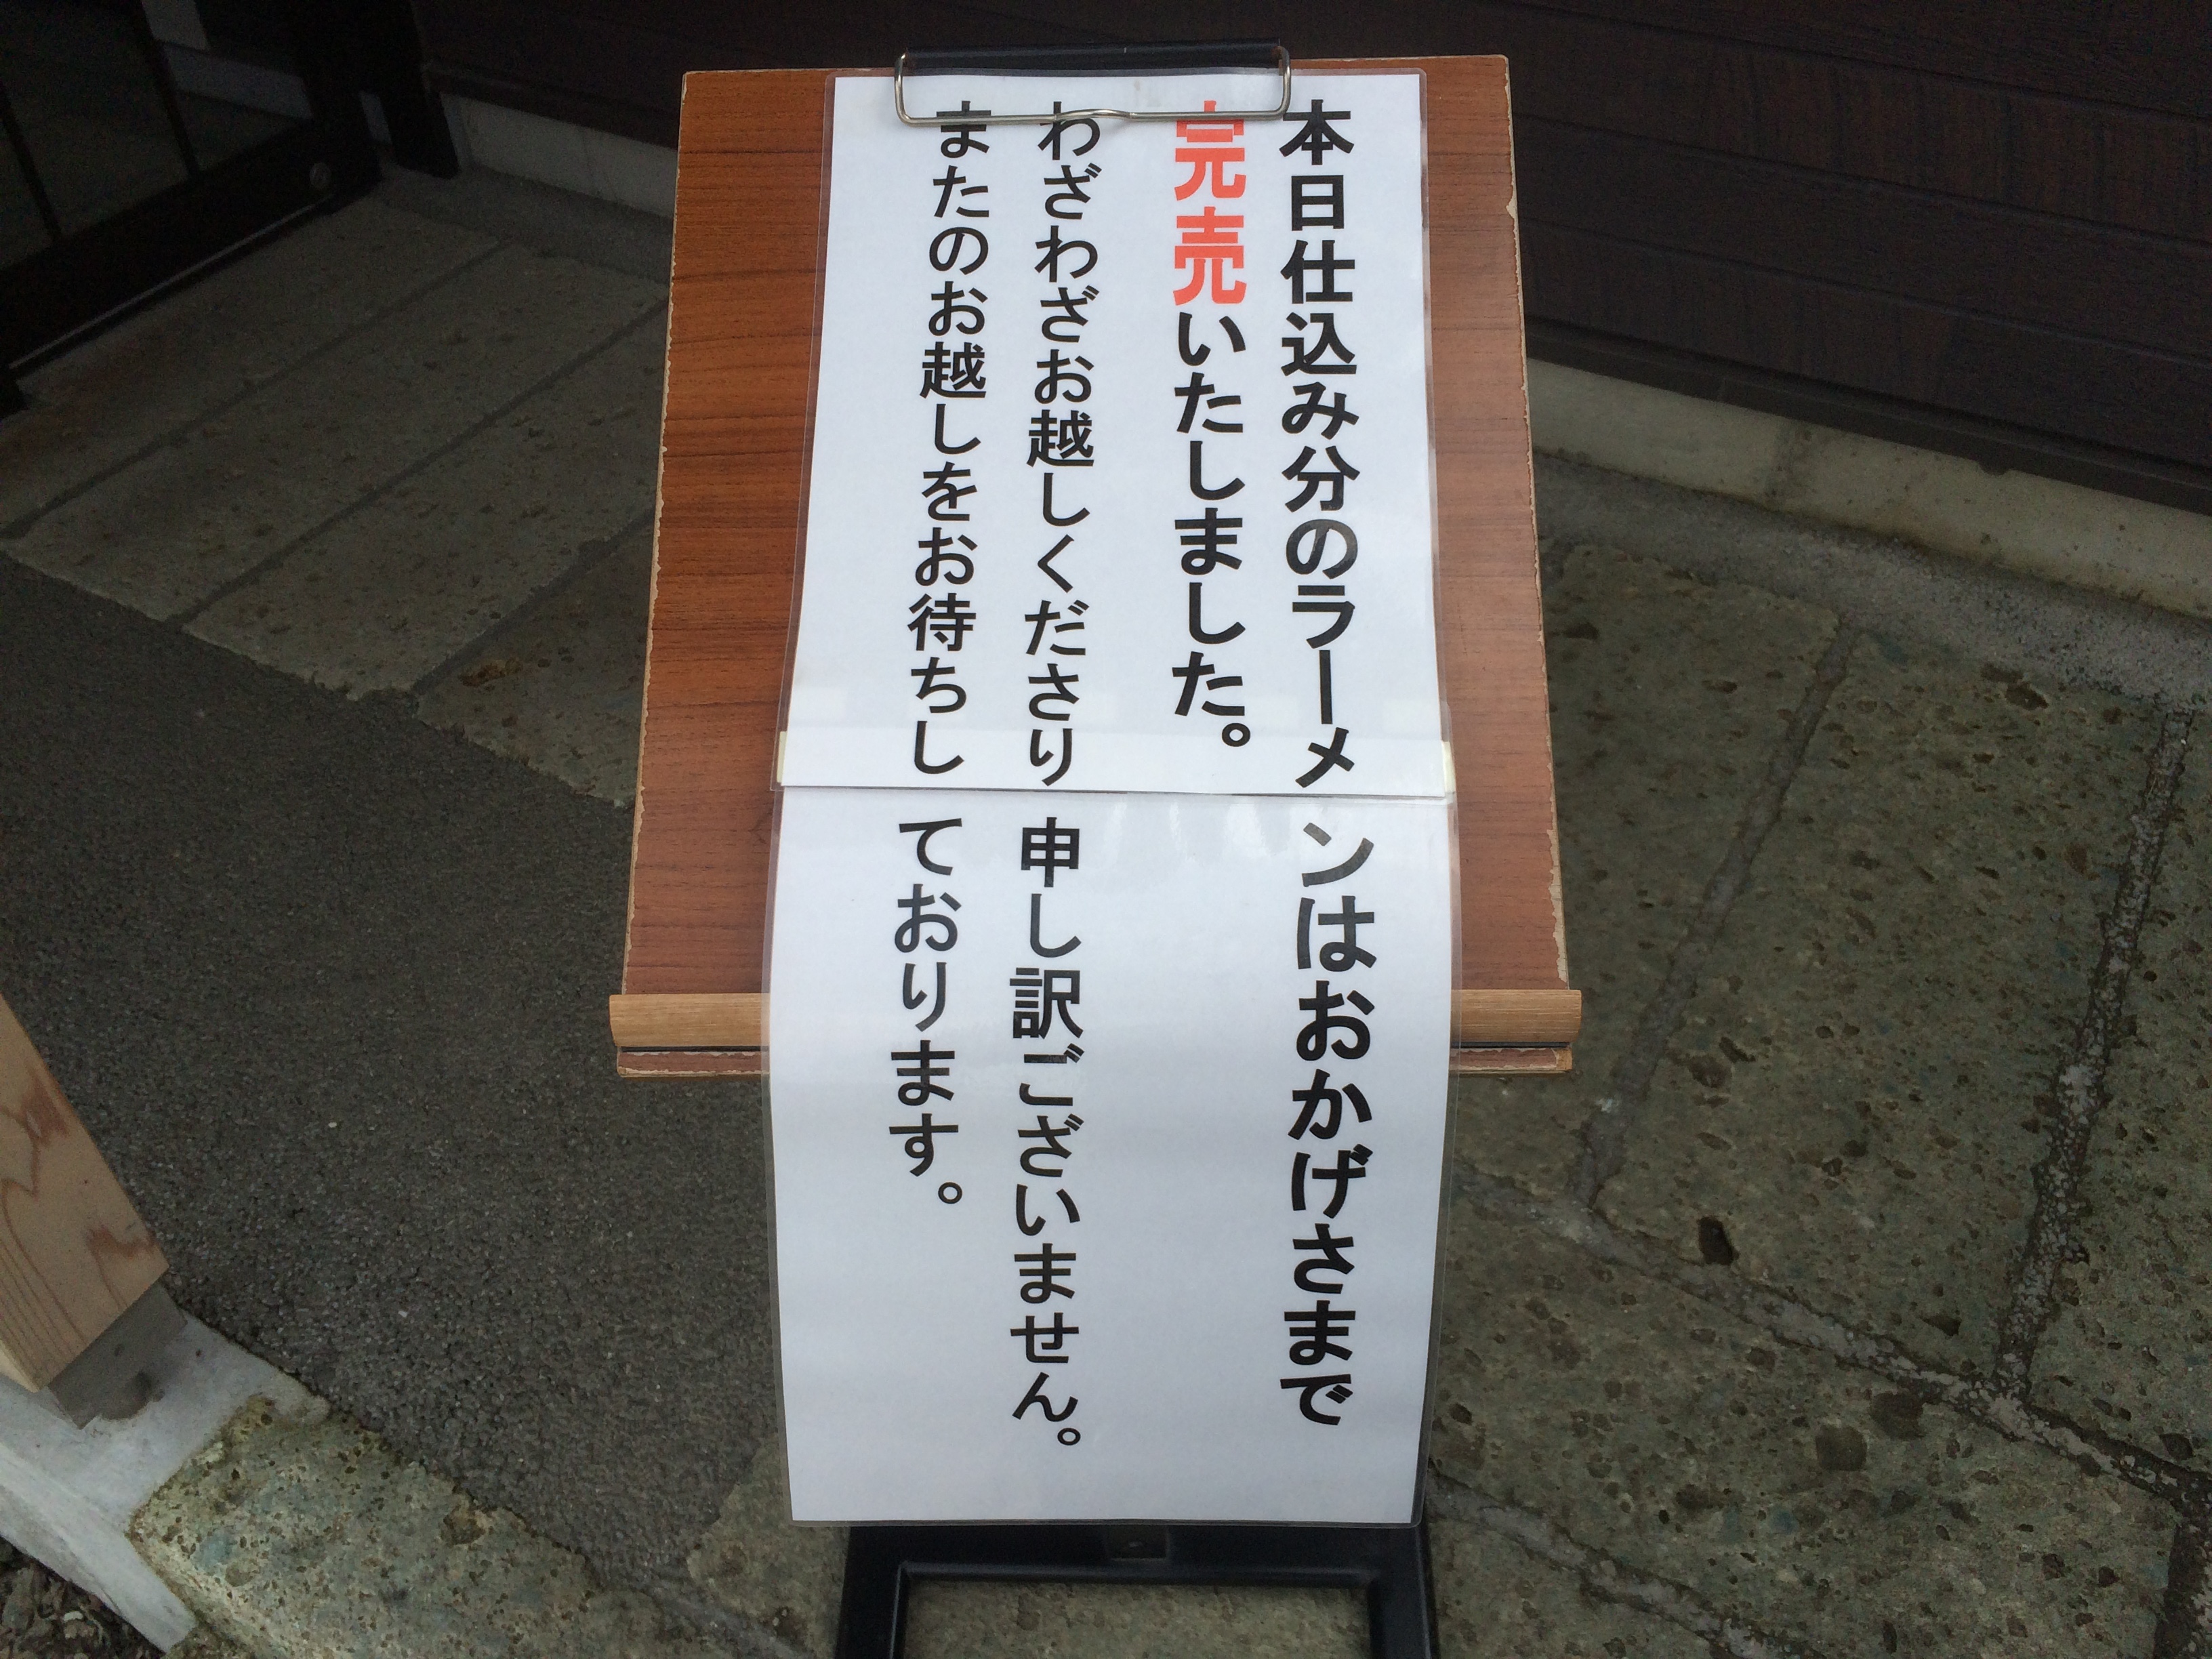 本日仕込み分のラーメンはおかげさまで
完売いたしました。
わざわざお越しくださり申し訳ございません。
またのお越しをお待ちしております。